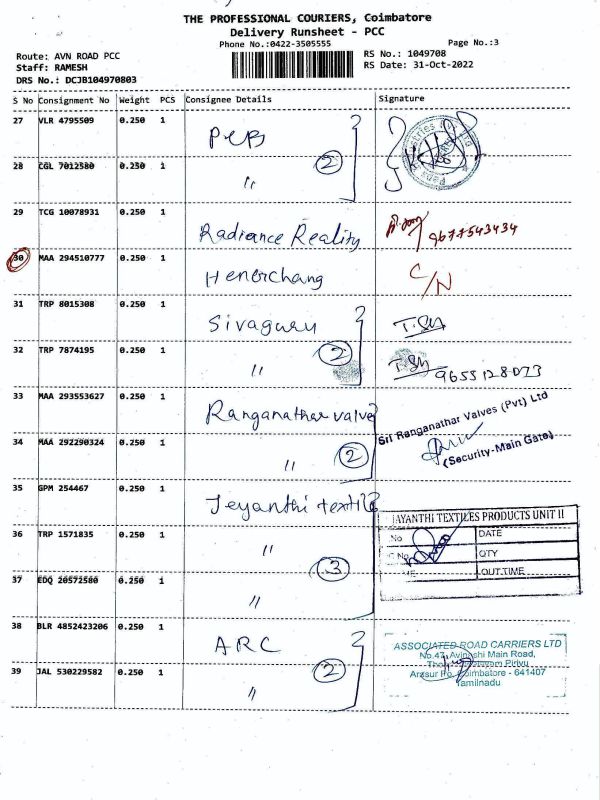 THE PROFESSIONAL COURIERS, Coimbatore
Delivery Runsheet - PCC
Phone No.:0422-3505555
Page No.:3
Route: AVN ROAD PCC
RS No.: 1049708
Staff: RAMESH
RS Date: 31-Oct-2022
DRS No.: DCJB104970803
S No Consignment No Weight PCS Consignee Details Signature
27 VLR 4795509 0.250 1 PCB
28 CGL 7012580 0.250 1 " 2
29 TCG 10078931 0.250 1 Radiance Reality 9677543434
30 MAA 294510777 0.250 1 Henerchang C/N
31 TRP 8015308 0.250 1 Sivaguru T.SM
32 TRP 7874195 0.250 1 " 2 T.SM 9655128073
33 MAA 293553627 0.250 1 Ranganathar valve
Sri Ranganathar Valves (Pvt) Ltd
34 MAA 292290324 0.250 1 " 2
(Security-Main Gate)
35 GPM 254467 0.250 1 Jeyanthi textile
JAYANTHI TEXTILES PRODUCTS UNIT II
36 TRP 1571835 0.250 1 "
No DATE
QTY
37 EDQ 20572580 0.250 1 " 3
OUT TIME
38 BLR 4852423206 0.250 1 ARC
ASSOCIATED ROAD CARRIERS LTD
No.47, Avinashi Main Road,
39 JAL 530229582 0.250 1 " 2
Pirivu
Arasur Po, Coimbatore - 641407
Tamilnadu